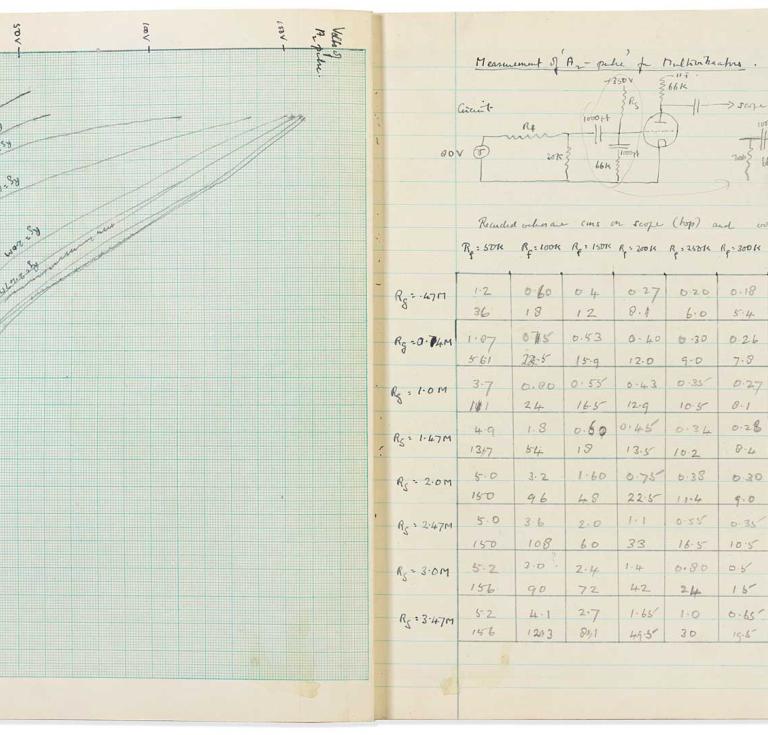 50V
100V
150V
Volts of
A₂ pulse.
Rg = 2.0M
Rg = 2.47M
Measurement of 'A₂ - pulse' for Multivibrators.
Circuit
+350V
Rg
66K
1000pf
→ scope
Rf
80V
20K
100pf
66K
Recorded values are cms on scope (top) and
Rf = 50K Rf = 100K Rf = 150K Rf = 200K Rf = 250K Rf = 300K
Rg = .47M 1.2 0.60 0.4 0.27 0.20 0.18
36 18 12 8.1 6.0 5.4
Rg = 0.74M 1.87 0.75 0.53 0.40 0.30 0.26
561 22.5 15.9 12.0 9.0 7.8
Rg = 1.0M 3.7 0.80 0.55 0.43 0.35 0.27
111 24 16.5 12.9 10.5 8.1
Rg = 1.47M 4.9 1.8 0.60 0.45 0.34 0.28
137 54 18 13.5 10.2 8.4
Rg = 2.0M 5.0 3.2 1.60 0.75 0.38 0.30
150 96 48 22.5 11.4 9.0
Rg = 2.47M 5.0 3.6 2.0 1.1 0.55 0.35
150 108 60 33 16.5 10.5
Rg = 3.0M 5.2 3.0? 2.4 1.4 0.80 0.5
156 90 72 42 24 15
Rg = 3.47M 5.2 4.1 2.7 1.65 1.0 0.65
156 123 81 49.5 30 19.5